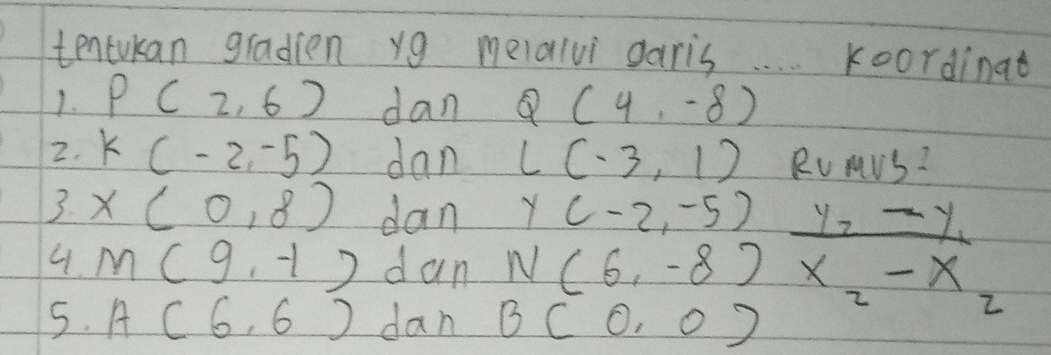 tentukan gradien yg melalui garis .... koordinat
1. P ( 2, 6 ) dan Q ( 4, -8 )
2. K ( -2, -5 ) dan L ( -3, 1 ) Rumus:
3. X ( 0, 8 ) dan Y ( -2, -5 ) y₂ - y₁
4. M ( 9, -1 ) dan N ( 6, -8 ) x₂ - x₂
5. A ( 6, 6 ) dan B ( 0, 0 )